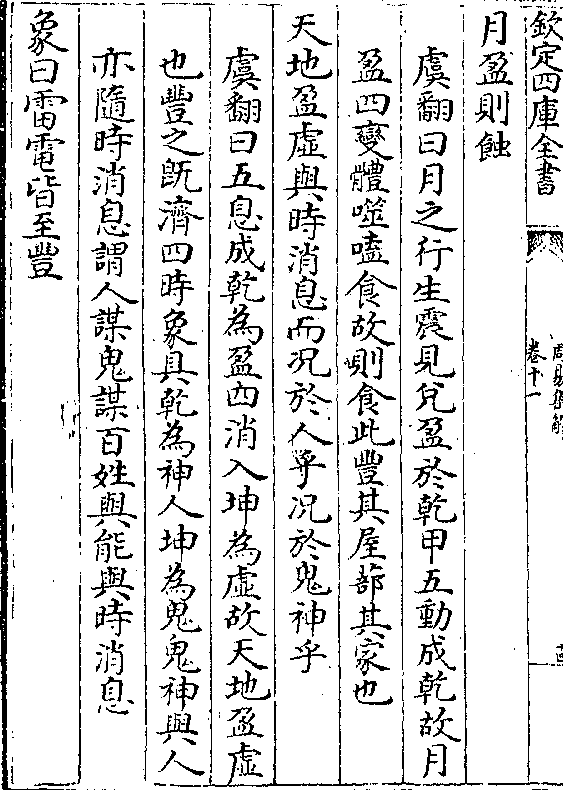 欽定四庫全書
周易集解
卷十一
十四
月盈則蝕
虞翻曰月之行生震見兌盈於乾甲五動成乾故月
盈四變體噬嗑食故則食此豐其屋蔀其家也
天地盈虛與時消息而况於人乎况於鬼神乎
虞翻曰五息成乾為盈四消入坤為虛故天地盈虛
也豐之既濟四時象具乾為神人坤為鬼鬼神與人
亦隨時消息謂人謀鬼謀百姓與能與時消息
象曰雷電皆至豐